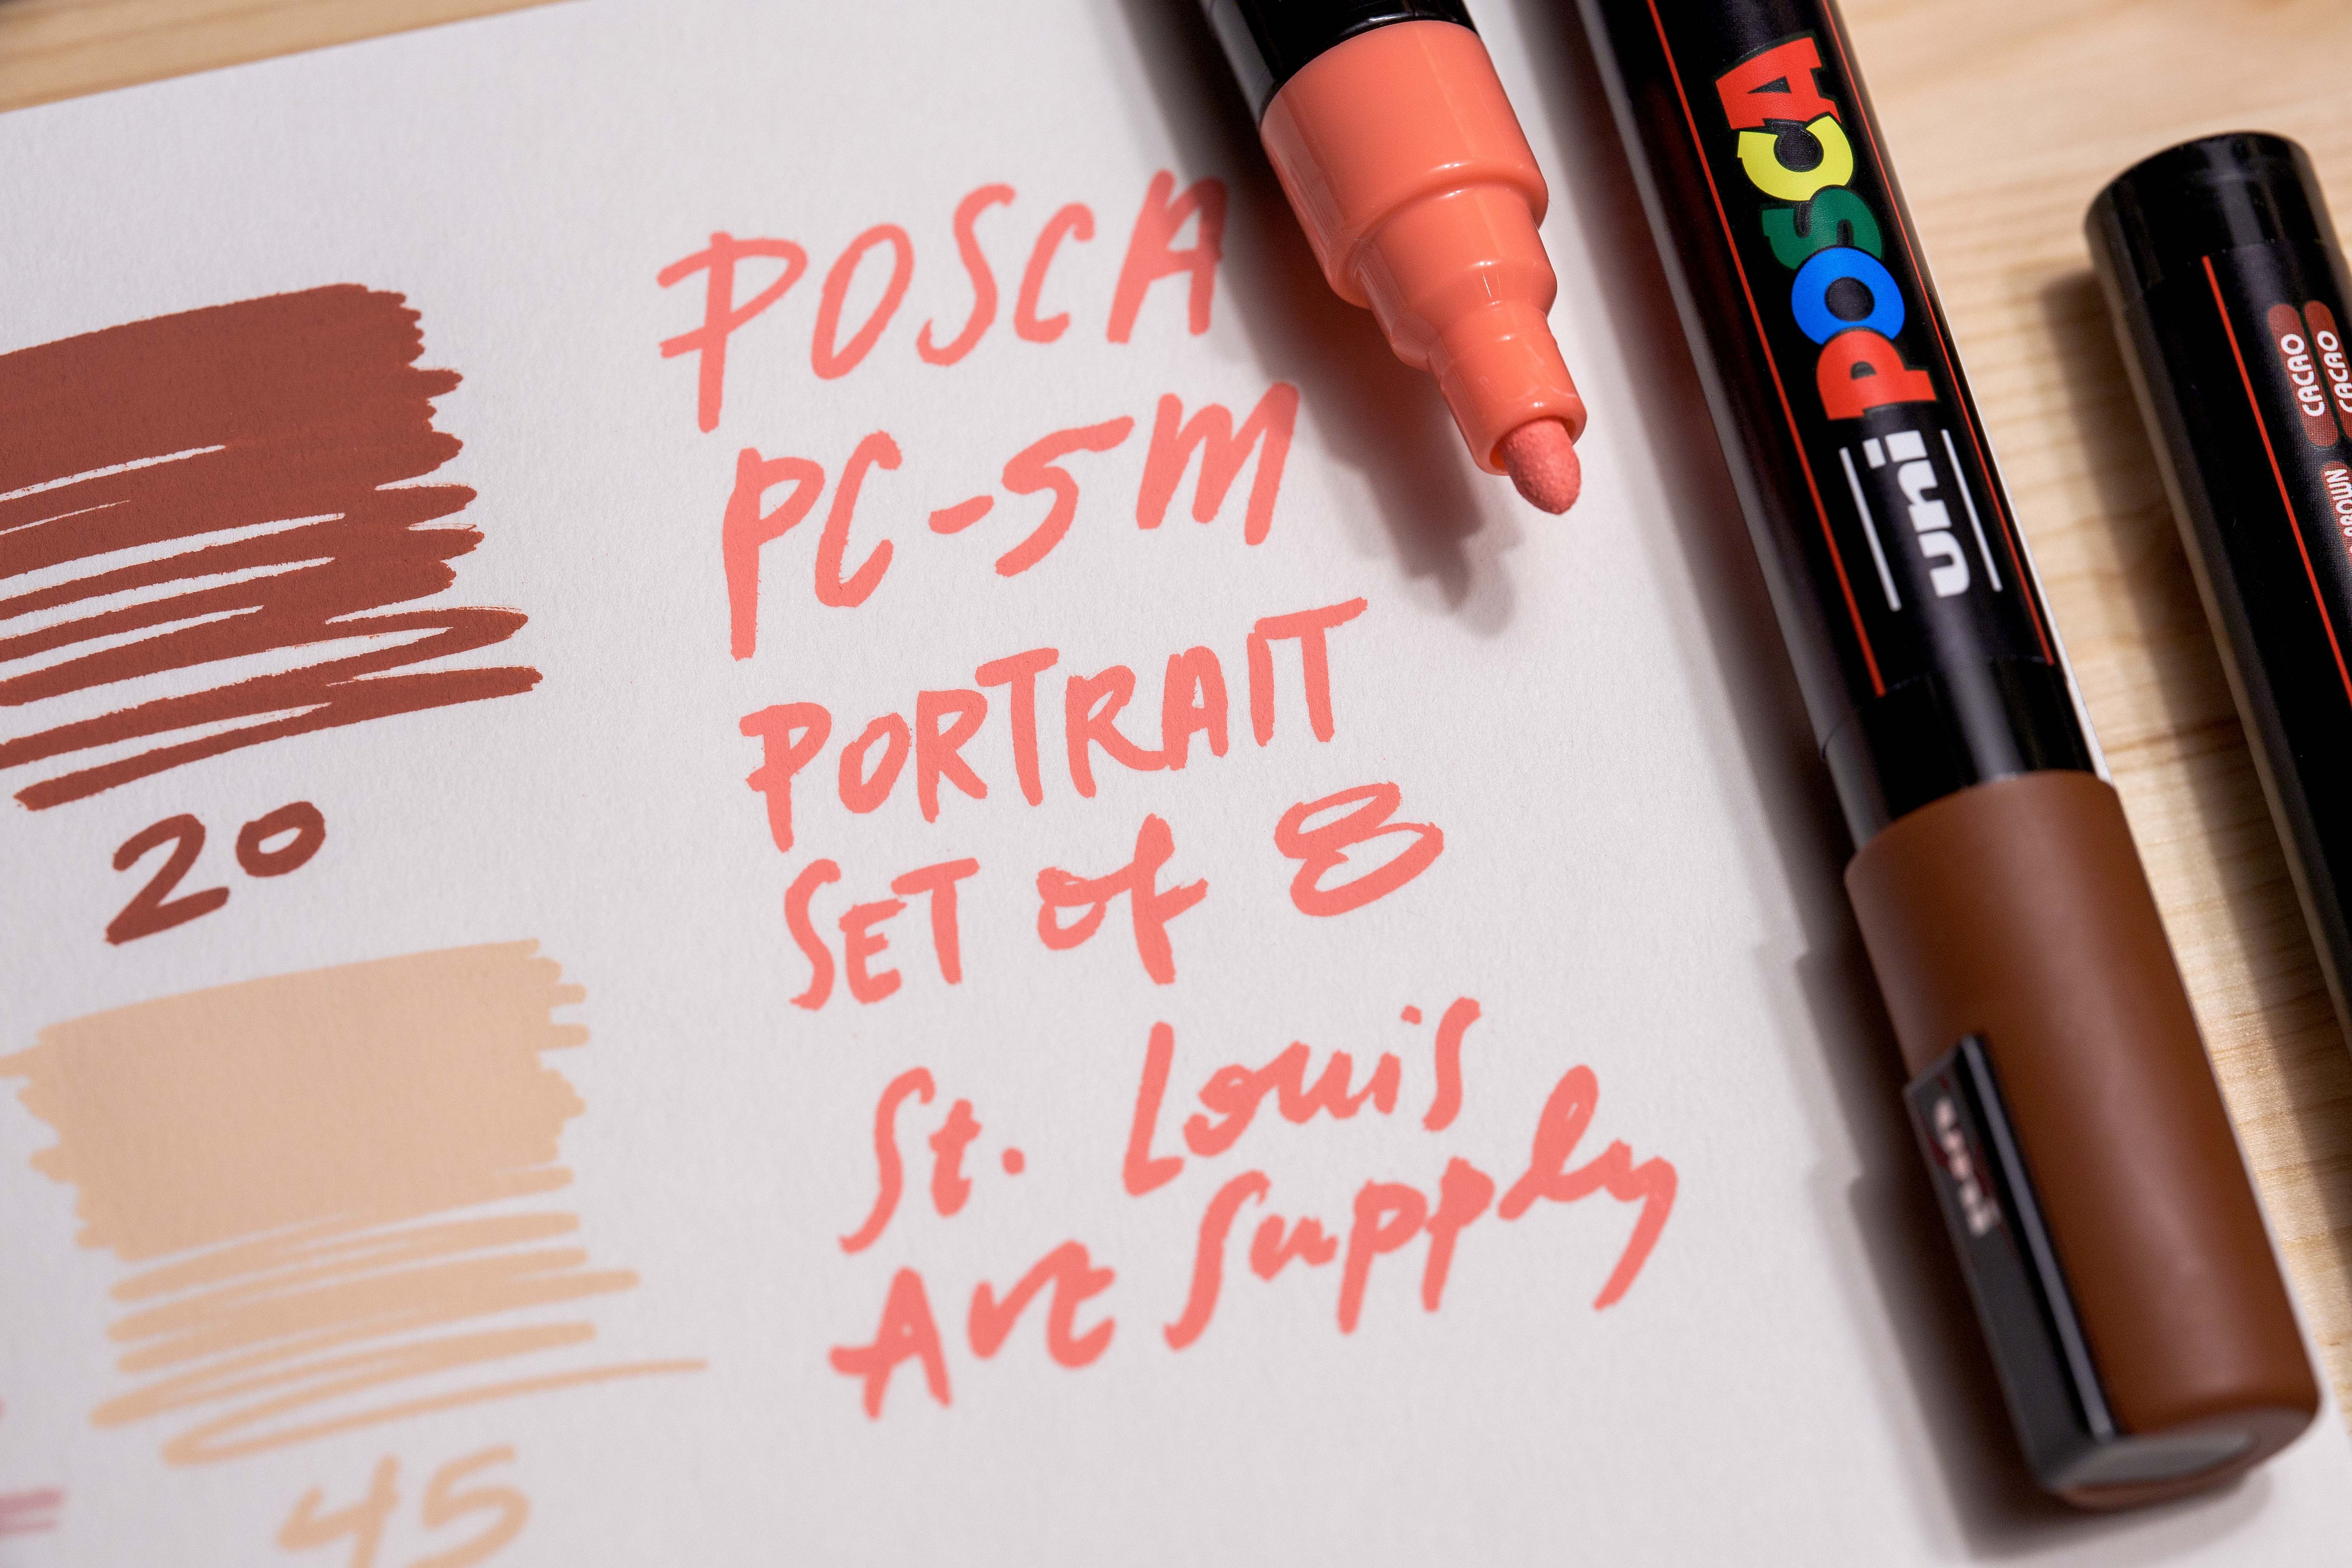 20
45
POSCA
PC-5M
PORTRAIT
SET of 8
St. Louis
Art Supply
uni POSCA
uni
CACAO
CACAO